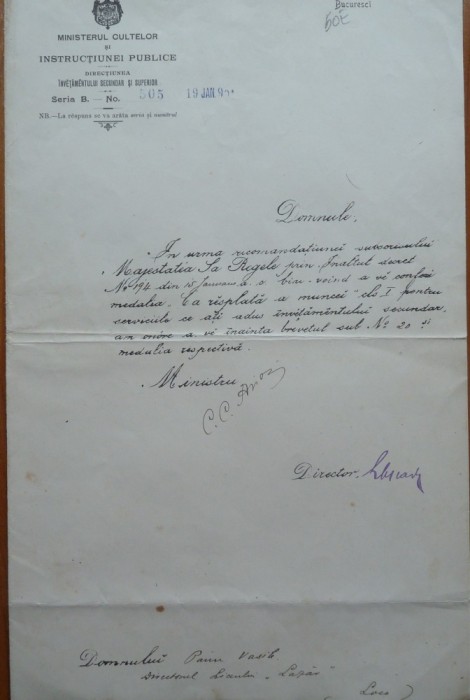 Bucuresci
MINISTERUL CULTELOR
ȘI
INSTRUCȚIUNEI PUBLICE
DIRECȚIUNEA
ÎNVĔȚĂMÊNTULUI SECUNDAR ȘI SUPERIOR
Seria B. — No. 565 19 JAN. 901
NB.—La rĕspuns se va arăta seria și numĕrul
Domnule,
În urma recomandațiunei subscrisului
Majestatea Sa Regele prin Înaltul decret
No 194 din 15 Januarie a. c. bine-voind a vĕ conferi
medalia "Rĕsplata a muncei" cls. I pentru
serviciile ce ați adus învĕțămêntului secundar,
am onóre a vĕ înainta brevetul sub No 20 și
medalia respectivă.
Ministru
C. C. Arion
Director,
Domnului Păun Vasile
Directorul Liceului "Lazăr"
Loco